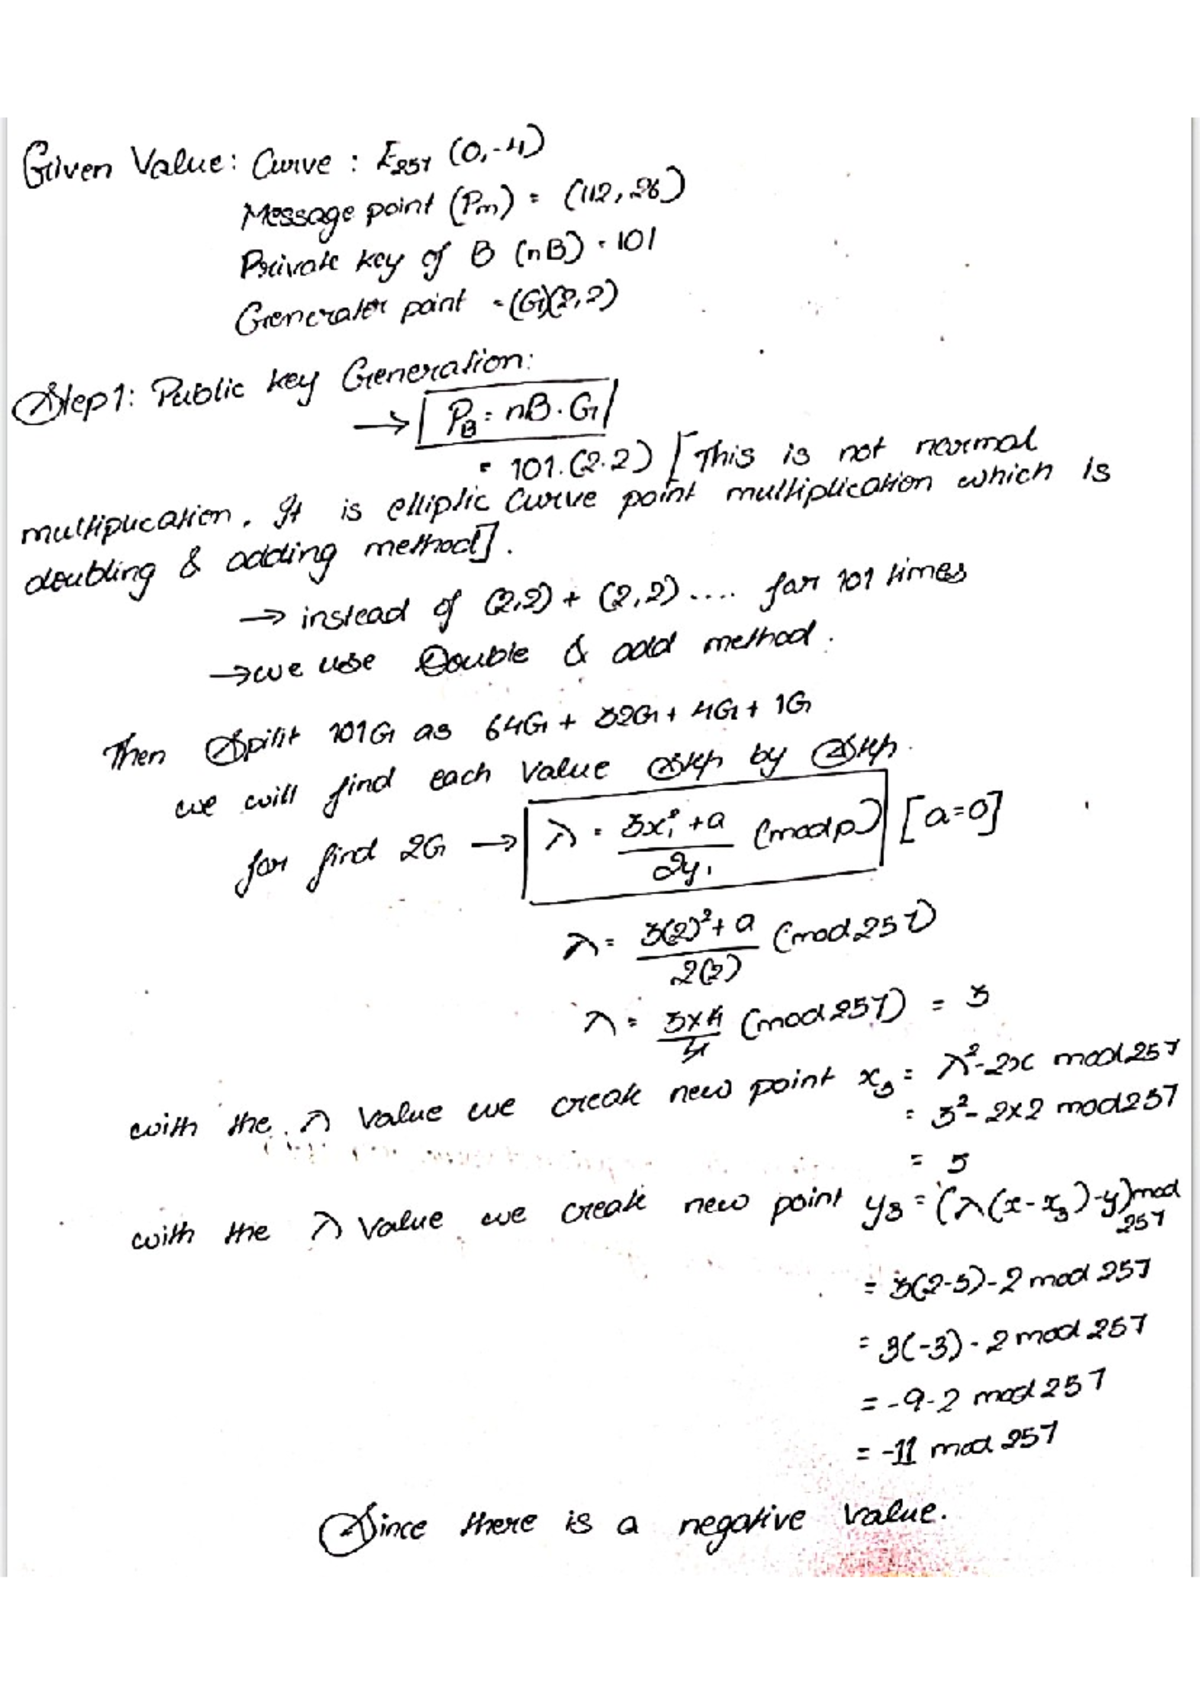 Given Value: Curve : E257 (0,-4)
Message point (Pm) = (112, 26)
Private key of B (nB) = 101
Generater point = (G)(2,2)
Step1: Public key Generation:
→ PB = nB.G
= 101.(2.2) [This is not normal
multiplication. It is elliptic Curve point multiplication which is
doubling & adding method].
→ instead of (2,2) + (2,2) .... for 101 times
→ we use Double & add method.
Then Spilit 101G as 64G + 32G + 4G + 1G
we will find each Value Step by Step.
for find 2G → λ = 3x₁² + a / 2y₁ (mod p) [a=0]
λ = 3(2)² + a / 2(2) (mod 257)
λ = 3×4 / 4 (mod 257) = 3
with the λ Value we create new point x₃ = λ²-2x mod 257
= 3²- 2×2 mod 257
= 5
with the λ Value we create new point y₃ = (λ(x-x₃)-y) mod 257
= 3(2-5)-2 mod 257
= 3(-3) - 2 mod 257
= -9-2 mod 257
= -11 mod 257
Since there is a negative value.